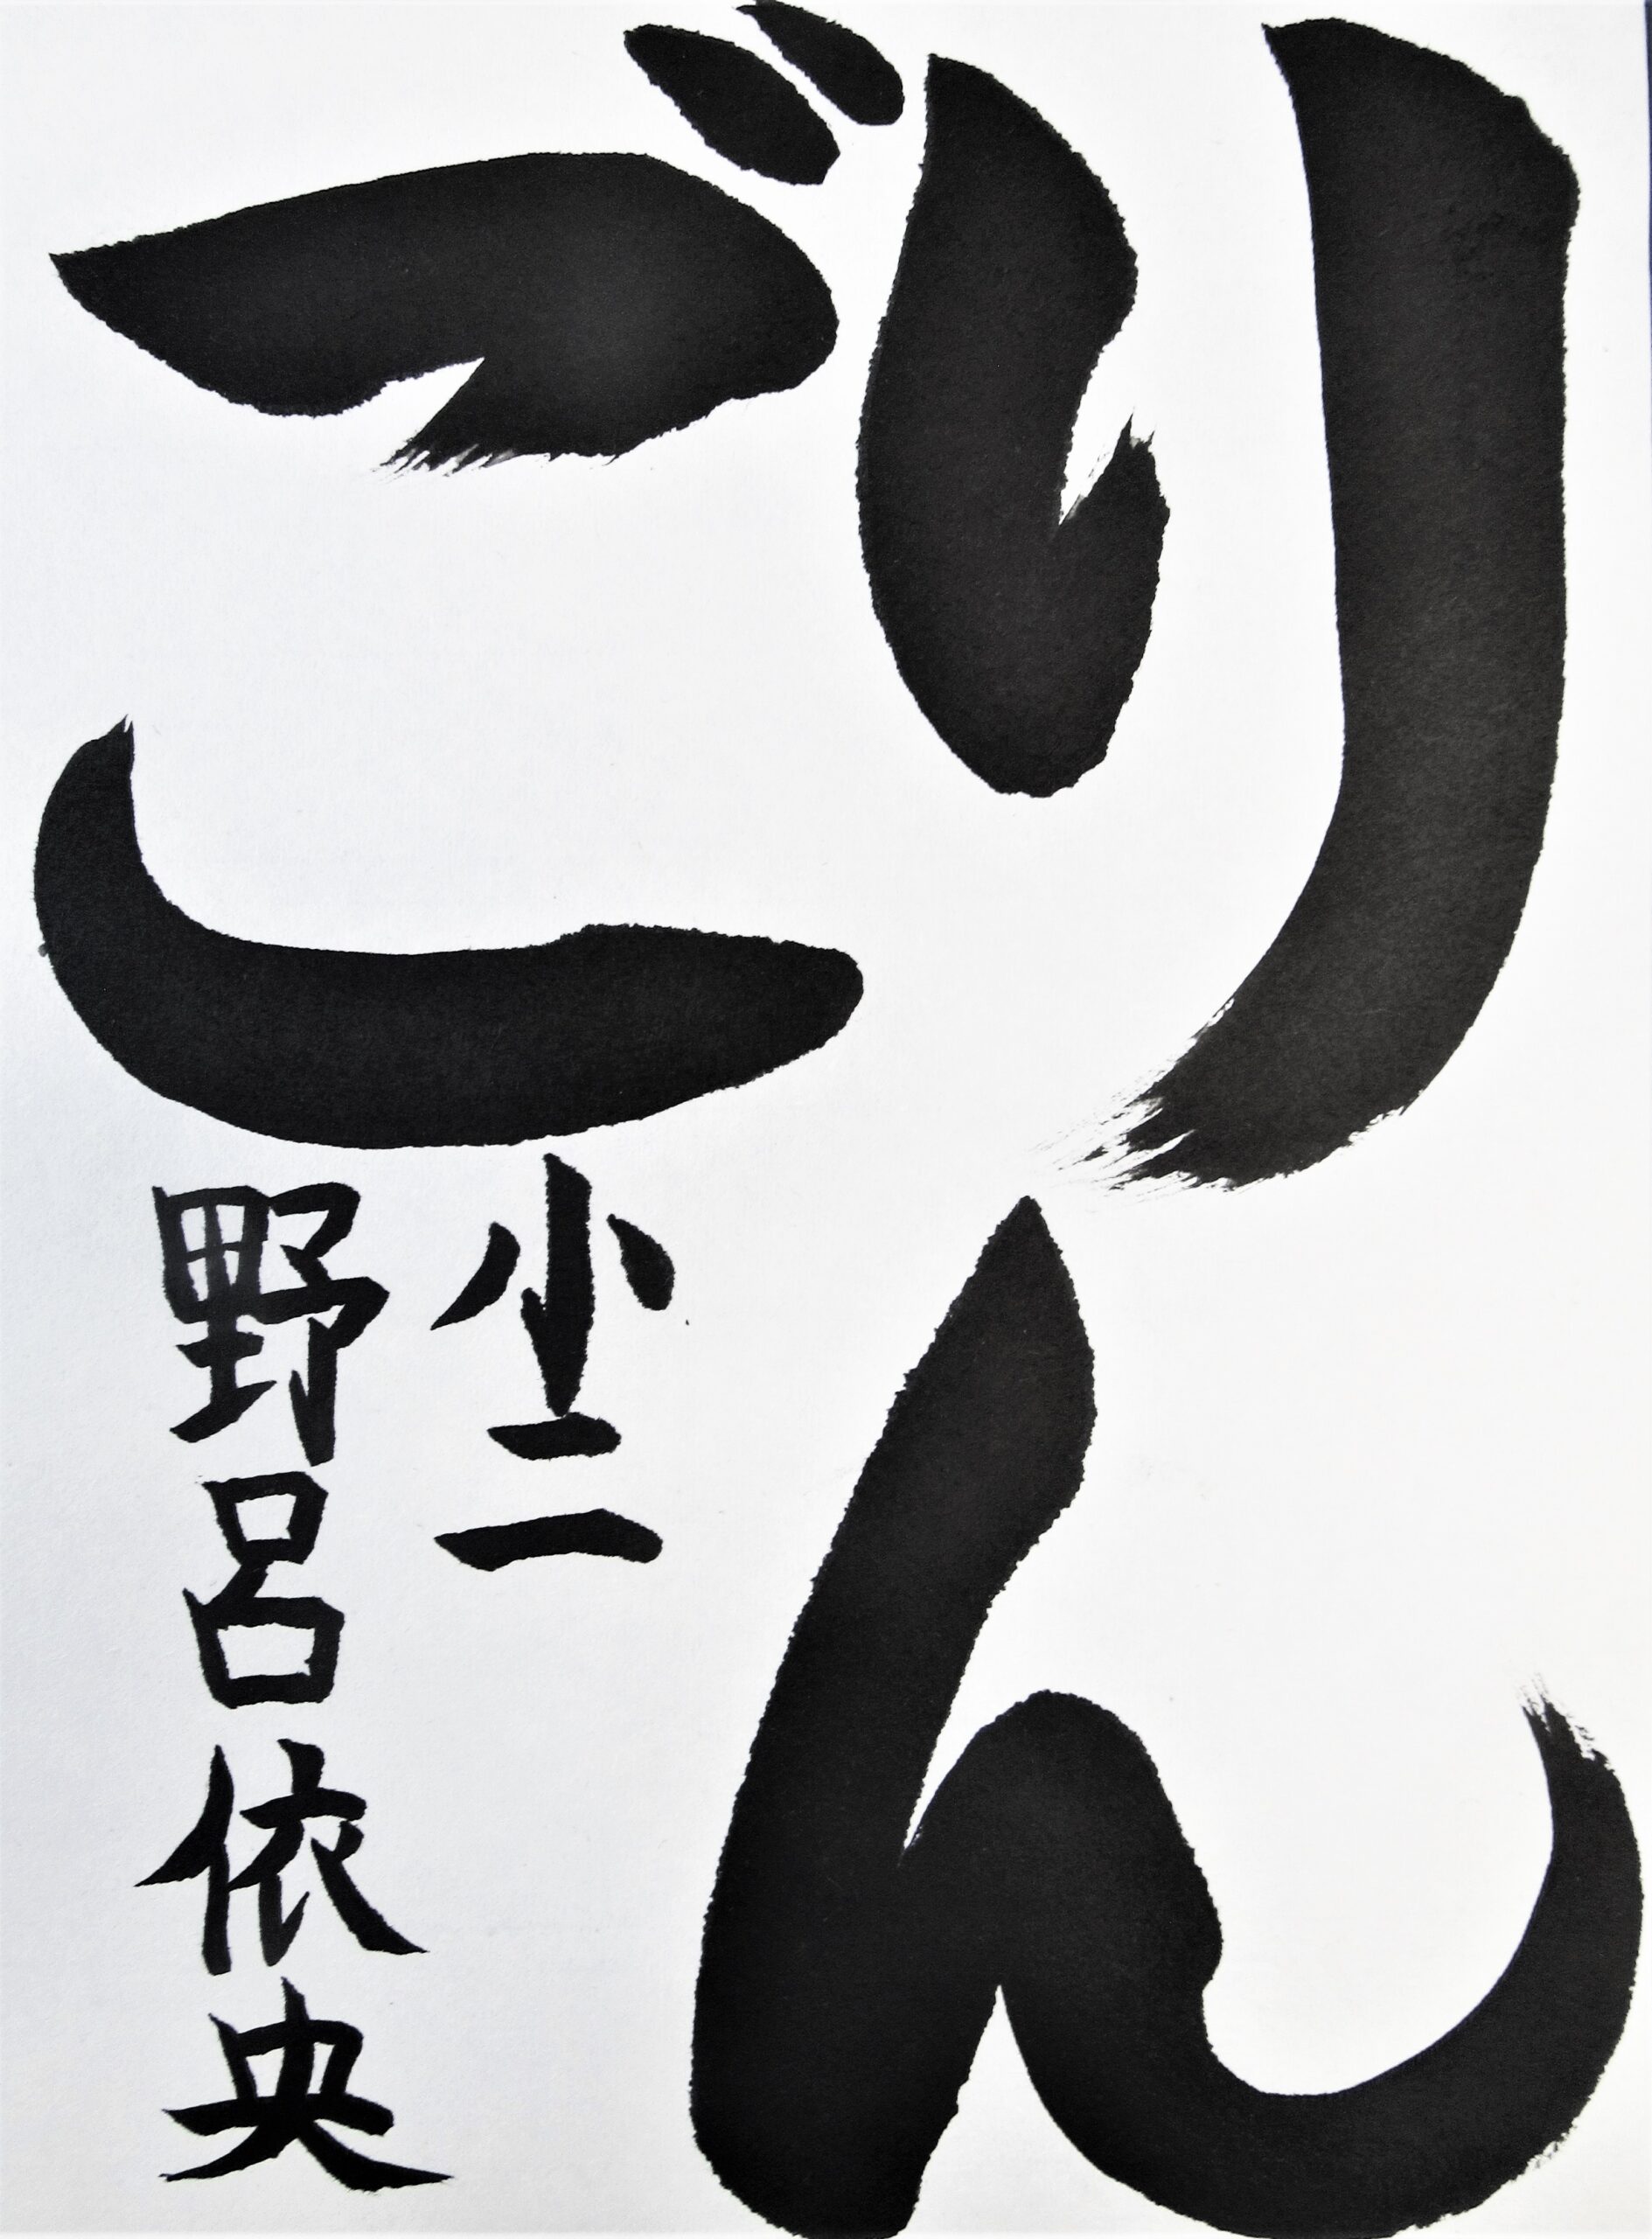 りん
ご
小二
野呂依央